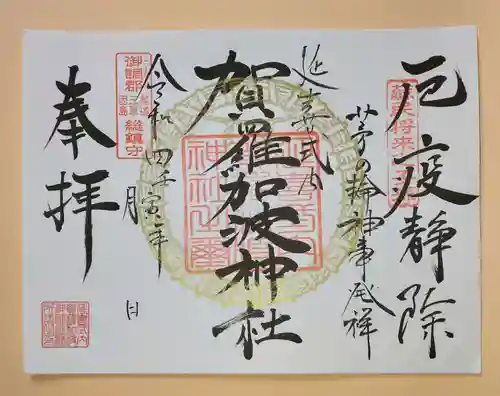 厄疫静除
茅の輪神事発祥
延喜式内
賀羅加波神社
令和四壬寅年
月 日
奉拝
蘇民将来
御調郡
総鎮守